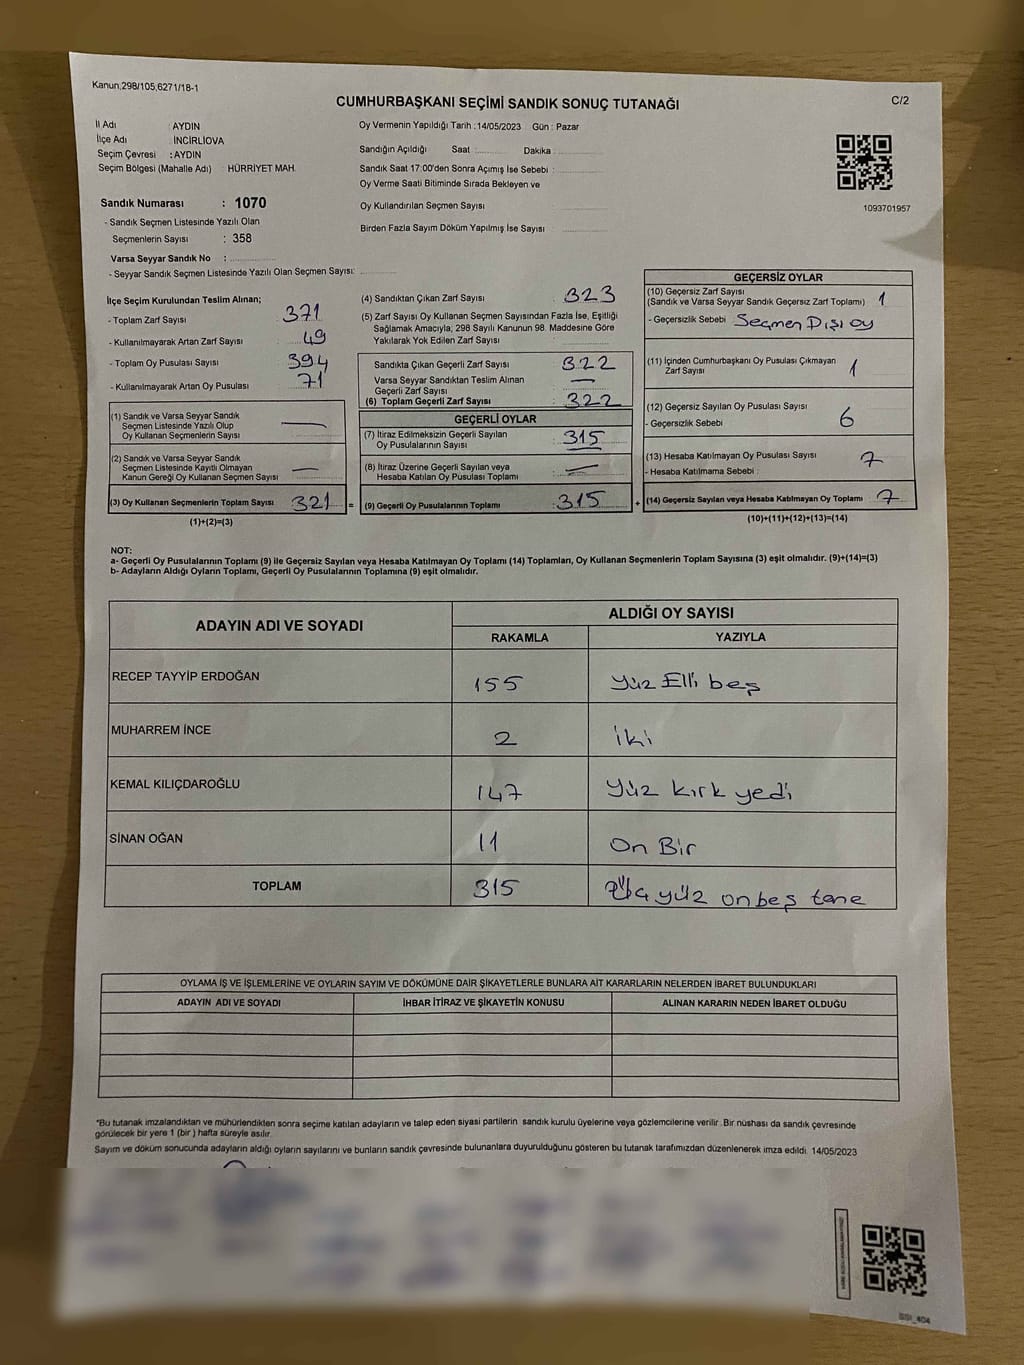 Kanun,298/105,6271/18-1
CUMHURBAŞKANI SEÇİMİ SANDIK SONUÇ TUTANAĞI
C/2
İl Adı : AYDIN
İlçe Adı : İNCİRLİOVA
Seçim Çevresi : AYDIN
Seçim Bölgesi (Mahalle Adı) HÜRRİYET MAH.
Oy Vermenin Yapıldığı Tarih :14/05/2023 Gün : Pazar
Sandığın Açıldığı Saat : Dakika :
Sandık Saat 17:00'den Sonra Açımış İse Sebebi :
Oy Verme Saati Bitiminde Sırada Bekleyen ve
Oy Kullandırılan Seçmen Sayısı
Birden Fazla Sayım Döküm Yapılmış İse Sayısı
1093701957
Sandık Numarası : 1070
- Sandık Seçmen Listesinde Yazılı Olan
Seçmenlerin Sayısı : 358
Varsa Seyyar Sandık No :
- Seyyar Sandık Seçmen Listesinde Yazılı Olan Seçmen Sayısı:
İlçe Seçim Kurulundan Teslim Alınan;
- Toplam Zarf Sayısı 371
- Kullanılmayarak Artan Zarf Sayısı 49
- Toplam Oy Pusulası Sayısı 394
- Kullanılmayarak Artan Oy Pusulası 71
(1) Sandık ve Varsa Seyyar Sandık
Seçmen Listesinde Yazılı Olup
Oy Kullanan Seçmenlerin Sayısı —
(2) Sandık ve Varsa Seyyar Sandık
Seçmen Listesinde Kayıtlı Olmayan
Kanun Gereği Oy Kullanan Seçmen Sayısı —
(3) Oy Kullanan Seçmenlerin Toplam Sayısı 321 =
(1)+(2)=(3)
(4) Sandıktan Çıkan Zarf Sayısı : 323
(5) Zarf Sayısı Oy Kullanan Seçmen Sayısından Fazla İse, Eşitliği
Sağlamak Amacıyla, 298 Sayılı Kanunun 98. Maddesine Göre
Yakılarak Yok Edilen Zarf Sayısı :
Sandıkta Çıkan Geçerli Zarf Sayısı : 322
Varsa Seyyar Sandıktan Teslim Alınan
Geçerli Zarf Sayısı : —
(6) Toplam Geçerli Zarf Sayısı : 322
GEÇERLİ OYLAR
(7) İtiraz Edilmeksizin Geçerli Sayılan
Oy Pusulalarının Sayısı : 315
(8) İtiraz Üzerine Geçerli Sayılan veya
Hesaba Katılan Oy Pusulası Toplamı : —
(9) Geçerli Oy Pusulalarının Toplamı : 315 +
GEÇERSİZ OYLAR
(10) Geçersiz Zarf Sayısı : 1
(Sandık ve Varsa Seyyar Sandık Geçersiz Zarf Toplamı)
- Geçersizlik Sebebi : Seçmen Dışı oy
(11) İçinden Cumhurbaşkanı Oy Pusulası Çıkmayan
Zarf Sayısı 1
(12) Geçersiz Sayılan Oy Pusulası Sayısı 6
- Geçersizlik Sebebi
(13) Hesaba Katılmayan Oy Pusulası Sayısı 7
- Hesaba Katılmama Sebebi :
(14) Geçersiz Sayılan veya Hesaba Katılmayan Oy Toplamı : 7
(10)+(11)+(12)+(13)=(14)
NOT:
a- Geçerli Oy Pusulalarının Toplamı (9) ile Geçersiz Sayılan veya Hesaba Katılmayan Oy Toplamı (14) Toplamları, Oy Kullanan Seçmenlerin Toplam Sayısına (3) eşit olmalıdır. (9)+(14)=(3)
b- Adayların Aldığı Oyların Toplamı, Geçerli Oy Pusulalarının Toplamına (9) eşit olmalıdır.
ADAYIN ADI VE SOYADI
ALDIĞI OY SAYISI
RAKAMLA YAZIYLA
RECEP TAYYİP ERDOĞAN 155 Yüz Elli beş
MUHARREM İNCE 2 iki
KEMAL KILIÇDAROĞLU 147 Yüz kırk yedi
SİNAN OĞAN 11 On Bir
TOPLAM 315 yüz onbeş tane
OYLAMA İŞ VE İŞLEMLERİNE VE OYLARIN SAYIM VE DÖKÜMÜNE DAİR ŞİKAYETLERLE BUNLARA AİT KARARLARIN NELERDEN İBARET BULUNDUKLARI
ADAYIN ADI VE SOYADI İHBAR İTİRAZ VE ŞİKAYETİN KONUSU ALINAN KARARIN NEDEN İBARET OLDUĞU
"Bu tutanak imzalandıktan ve mühürlendikten sonra seçime katılan adayların ve talep eden siyasi partilerin sandık kurulu üyelerine veya gözlemcilerine verilir. Bir nüshası da sandık çevresinde
görülecek bir yere 1 (bir) hafta süreyle asılır.
Sayım ve döküm sonucunda adayların aldığı oyların sayılarını ve bunların sandık çevresinde bulunanlara duyurulduğunu gösteren bu tutanak tarafımızdan düzenlenerek imza edildi. 14/05/2023
SSI_404